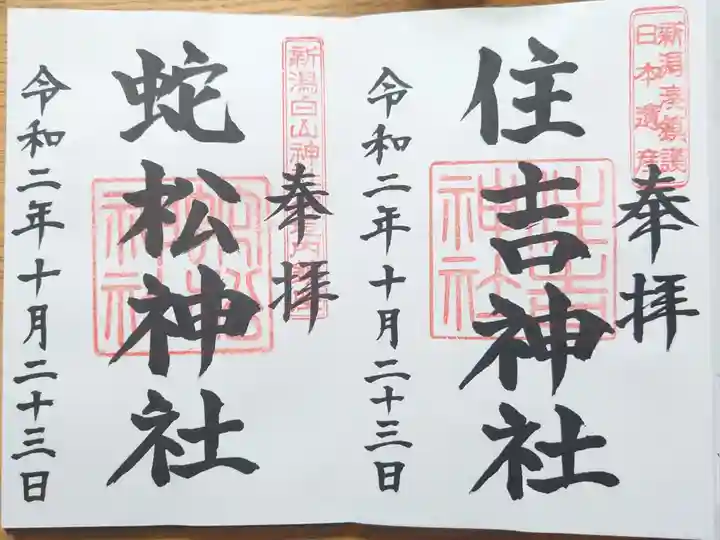 新潟湊鎮護
日本遺産
奉拝
住吉神社
令和二年十月二十三日
新潟白山神
奉拝
蛇松神社
令和二年十月二十三日